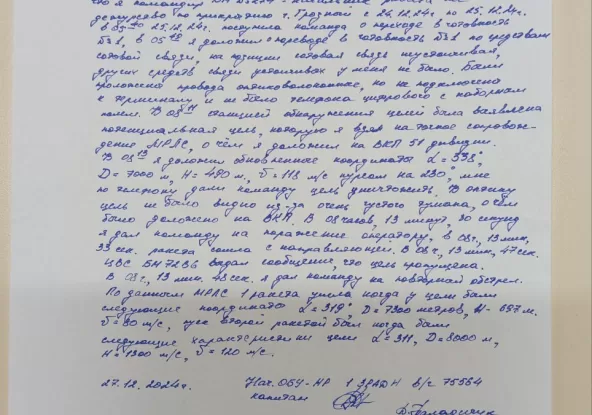 что я командир БМ 72В6
дежурство по прикрытию г. Грозный с 24.12.24г. по 25.12.24г.
в 05⁴⁰ 25.12.24г. поступила команда о переходе в готовность
№1, в 05⁴⁸ я доложил о переводе в готовность №1 по средствам
сотовой связи, на позиции сотовая связь неустойчивая,
других средств связи устойчивых у меня не было. Были
проложена провода оптиковолоконные, но не подключено
к терминалу и не было телефона цифрового с наборным
полем. В 08¹¹ станцией обнаружения целей была выявлена
потенциальная цель, которую я взял на точное сопровож-
дение МРЛС, о чём я доложил на ВКП 51 дивизии.
В 08¹³ я доложил обновленные координаты α = 338°,
D = 7000 м, H = 480 м, v = 118 м/с курсом на 230°, мне
по телефону дали команду цель уничтожить. В оптику
цель не было видно из-за очень густого тумана, о чём
было доложено на ВКП. В 08 часов, 13 минут, 30 секунд
я дал команду на поражение оператору. в 08ч., 13 мин,
33 сек. ракета сошла с направляющей. В 08ч, 13 мин, 47 сек.
ЦВС БМ 72В6 выдал сообщение, что цель пропущена.
В 08ч., 13 мин. 48 сек. я дал команду на повторный обстрел.
По данным МРЛС 1 ракета ушла когда у цели были
следующие координаты α = 319°, D = 7300 метров, H - 697 м.
v = 90 м/с, пуск второй ракетой был когда были
следующие характеристики цели α = 311, D = 8000 м,
H = 1300 м/с, v = 120 м/с.
27.12.2024г. Нач. ОБУ-НР 1 ЗРАДН в/с 75564
капитан